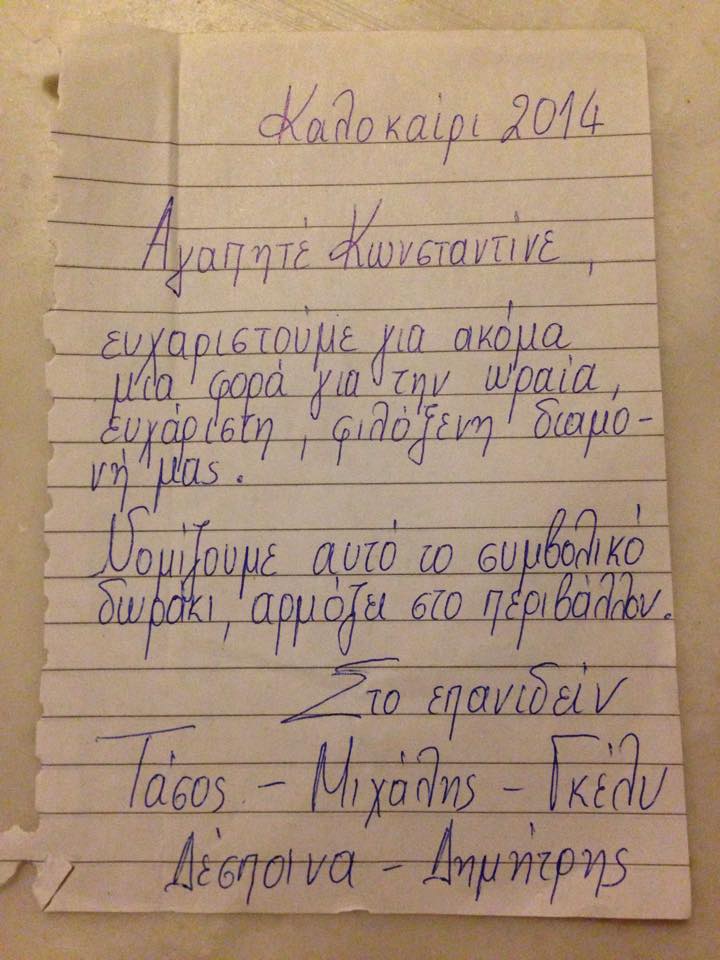 Καλοκαίρι 2014
Αγαπητέ Κωνσταντίνε,
ευχαριστούμε για ακόμα
μια φορά για την ωραία,
ευχάριστη, φιλόξενη διαμο-
νή μας.
Νομίζουμε αυτό το συμβολικό
δωράκι, αρμόζει στο περιβάλλον.
Στο επανιδείν
Τάσος - Μιχάλης - Γκέλυ
Δέσποινα - Δημήτρης